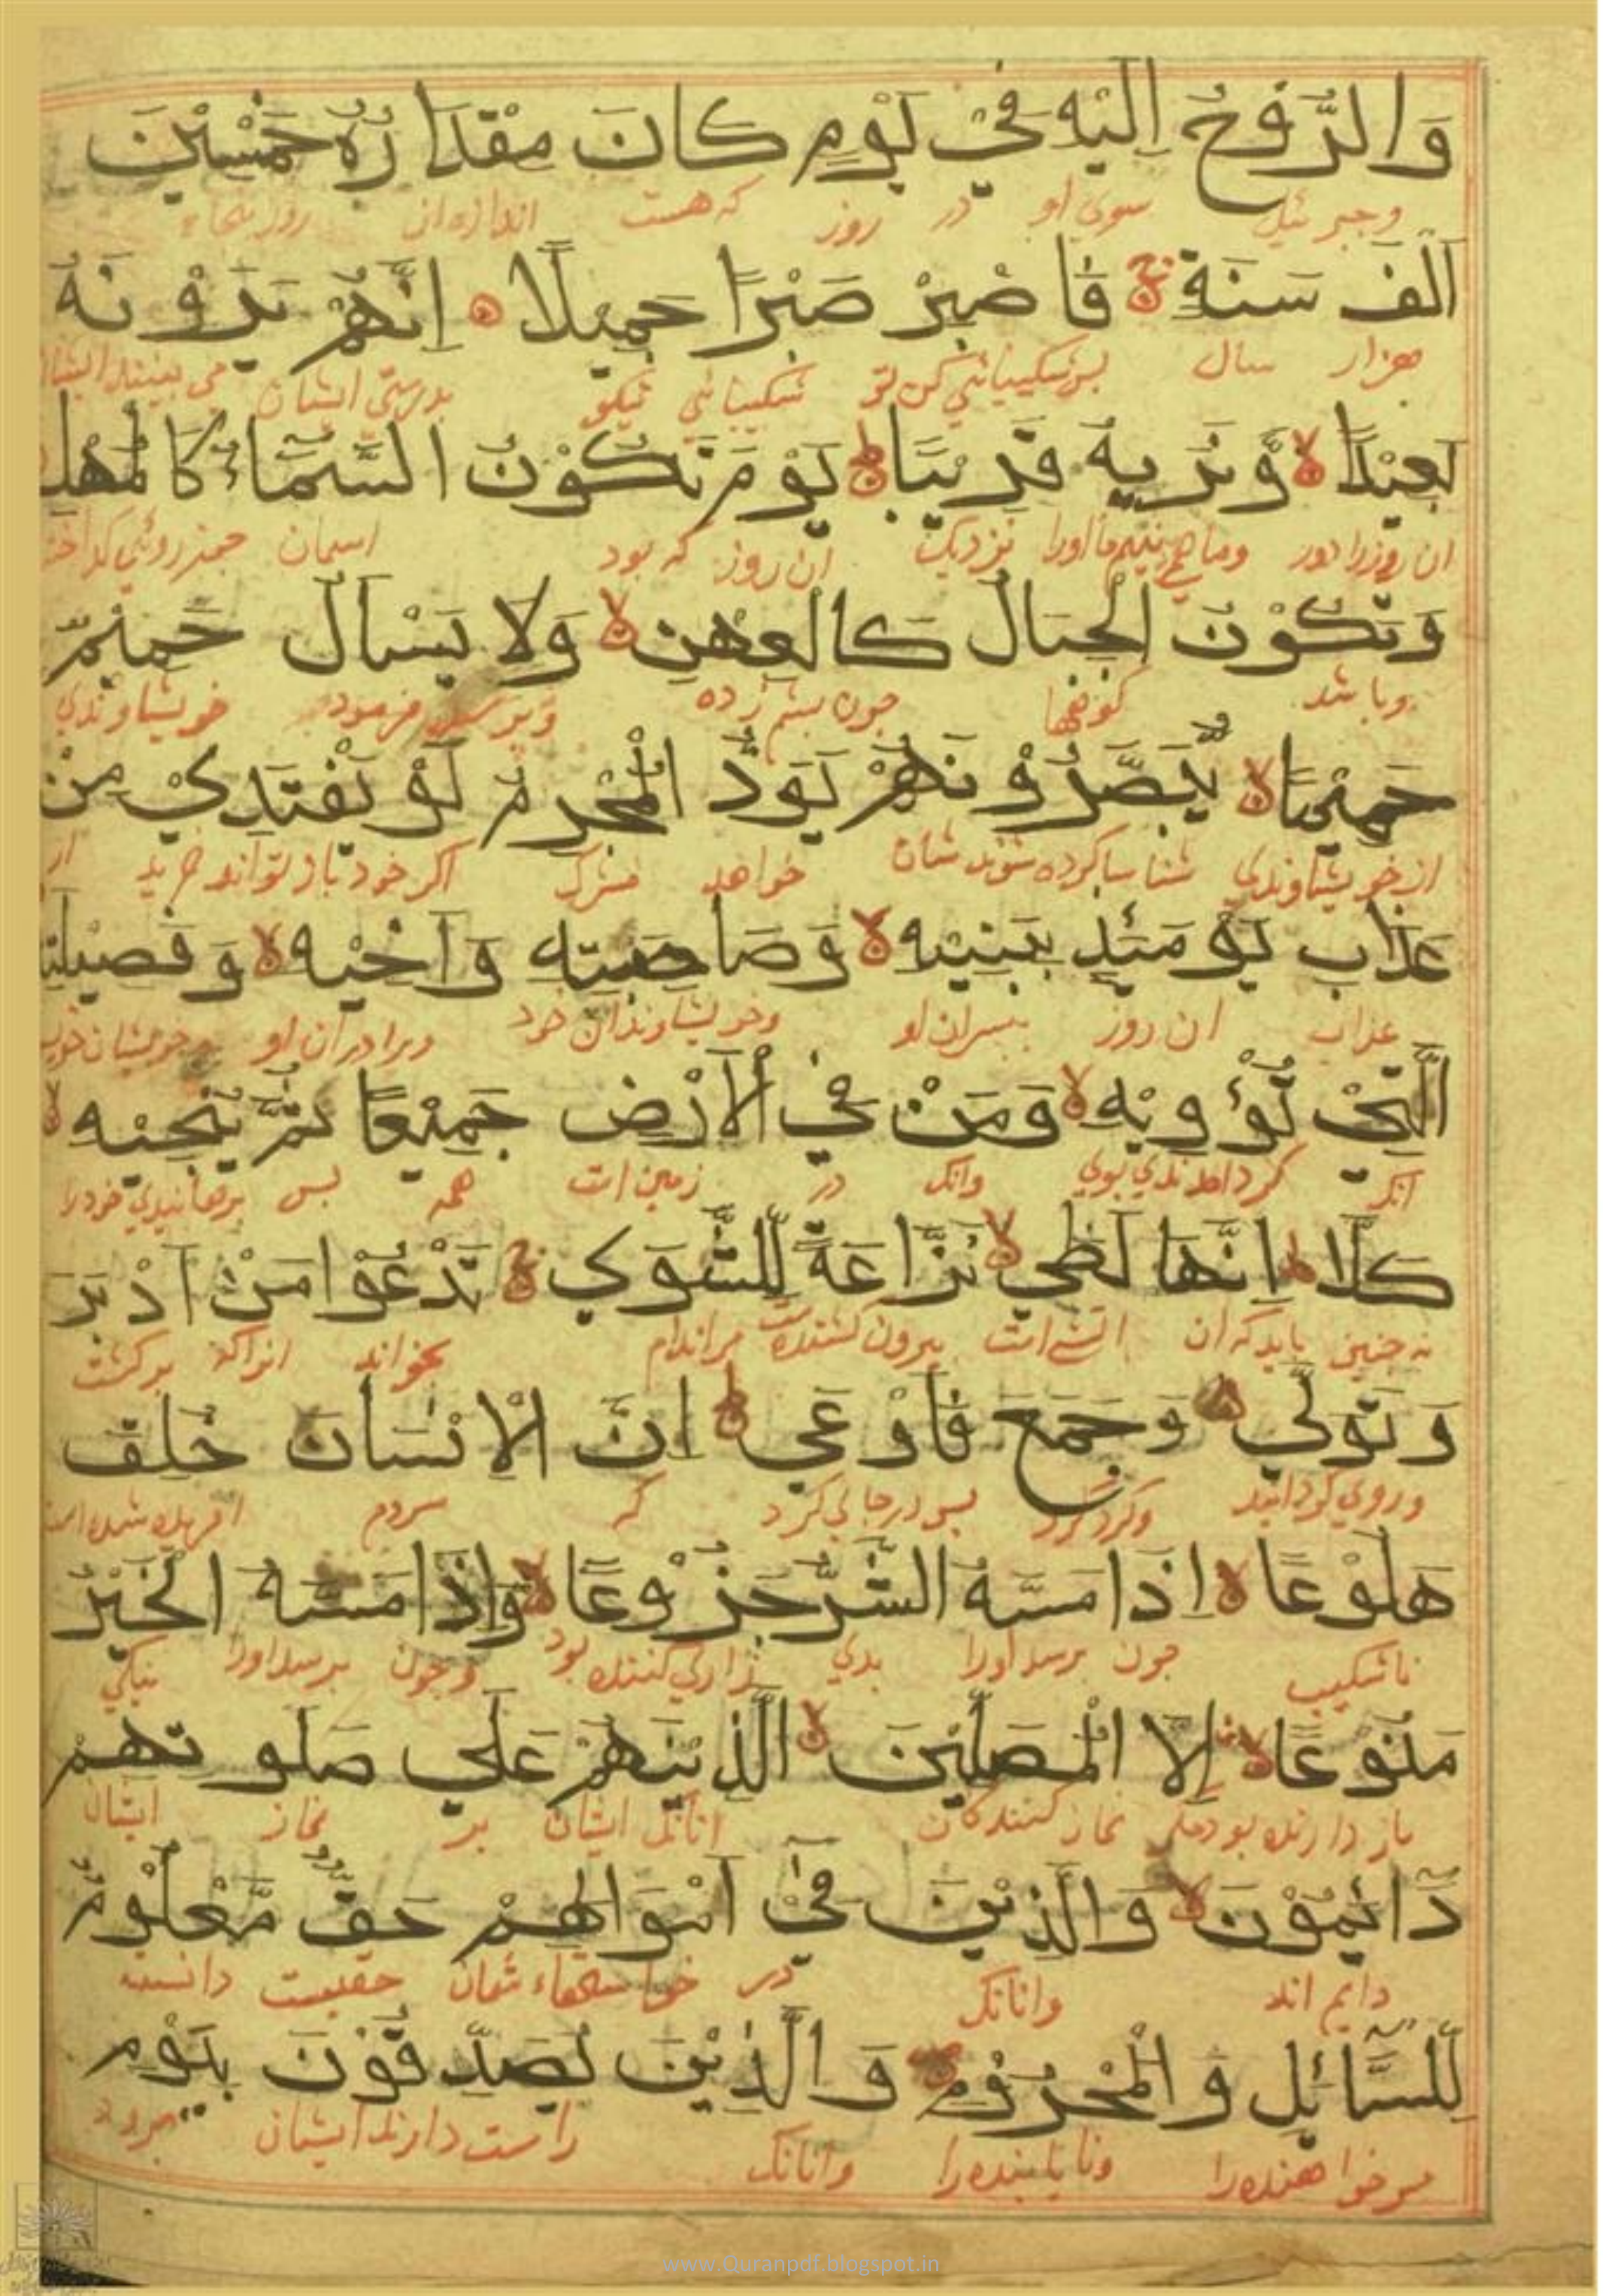 وَالرُّوْحُ اِلَيْهِ فِيْ يَوْمٍ كَانَ مِقْدَارُهٗ خَمْسِيْنَ
وجبرئيل سوي او در روز كه هست اندازه ان
اَلْفَ سَنَةٍ فَاصْبِرْ صَبْرًا جَمِيْلًا اِنَّهُمْ يَرَوْنَهٗ
هزار سال پس شكيبائي كن تو شكيبائي نيكو بدرستي ايشان مي بينند
بَعِيْدًا وَّنَرٰىهُ قَرِيْبًا يَوْمَ تَكُوْنُ السَّمَآءُ كَالْمُهْلِ
ان روز را دور وما هم بينيم ما اورا نزديك ان روز كه بود اسمان
وَتَكُوْنُ الْجِبَالُ كَالْعِهْنِ وَلَا يَسْـَٔلُ حَمِيْمٌ
وباشد كوهها چون پشم زده خويشاوندي
حَمِيْمًا يُّبَصَّرُوْنَهُمْ يَوَدُّ الْمُجْرِمُ لَوْ يَفْتَدِيْ مِنْ
از خويشاوندي شناسا كرده شوند شان خواهد مشرك اكر خود باز تواند خريد از
عَذَابِ يَوْمَئِذٍ بِبَنِيْهِ وَصَاحِبَتِهٖ وَاَخِيْهِ وَفَصِيْلَتِهِ
عذاب ان روز بپسران او وخويشاوندان خود وبرادران او
الَّتِيْ تُـْٔوِيْهِ وَمَنْ فِي الْاَرْضِ جَمِيْعًا ثُمَّ يُنْجِيْهِ
انك وانك در زمين است همه پس برهانيدي خود را
كَلَّا اِنَّهَا لَظٰي نَزَّاعَةً لِّلشَّوٰي تَدْعُوْا مَنْ اَدْبَرَ
نه چنين بايد كه ان اتش است بيرون كشنده است مر اندام بخواند انرا كه بركشت
وَتَوَلّٰي وَجَمَعَ فَاَوْعٰي اِنَّ الْاِنْسَانَ خُلِقَ
وروي كردانيد وكرد كرد پس در جاي كرد كه مردم افريده شده است
هَلُوْعًا اِذَا مَسَّهُ الشَّرُّ جَزُوْعًا وَّاِذَا مَسَّهُ الْخَيْرُ
ناشكيب چون برسد اورا بدي زاري كننده بود وچون برسد اورا نيكي
مَنُوْعًا اِلَّا الْمُصَلِّيْنَ الَّذِيْنَ هُمْ عَلٰي صَلٰوتِهِمْ
باز دارنده بود مكر نماز كنندكان انانك ايشان بر نماز ايشان
دَآئِمُوْنَ وَالَّذِيْنَ فِيْٓ اَمْوَالِهِمْ حَقٌّ مَّعْلُوْمٌ
دايم اند وانانك در خواستهاء شان حقيست دانسته
لِّلسَّآئِلِ وَالْمَحْرُوْمِ وَالَّذِيْنَ يُصَدِّقُوْنَ بِيَوْمِ
مر خواهنده را ونا يابنده را وانانك راست دارند ايشان
www.Quranpdf.blogspot.in